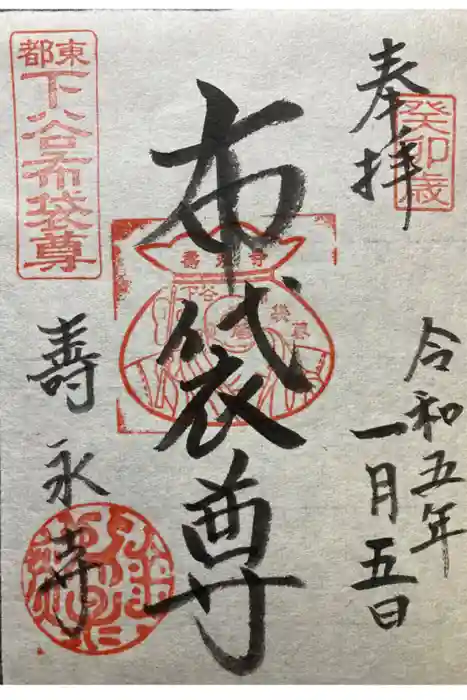 奉拝
癸卯歳
令和五年
一月五日
布袋尊
壽永寺
下谷
布袋尊
東都
下谷布袋尊
壽永寺